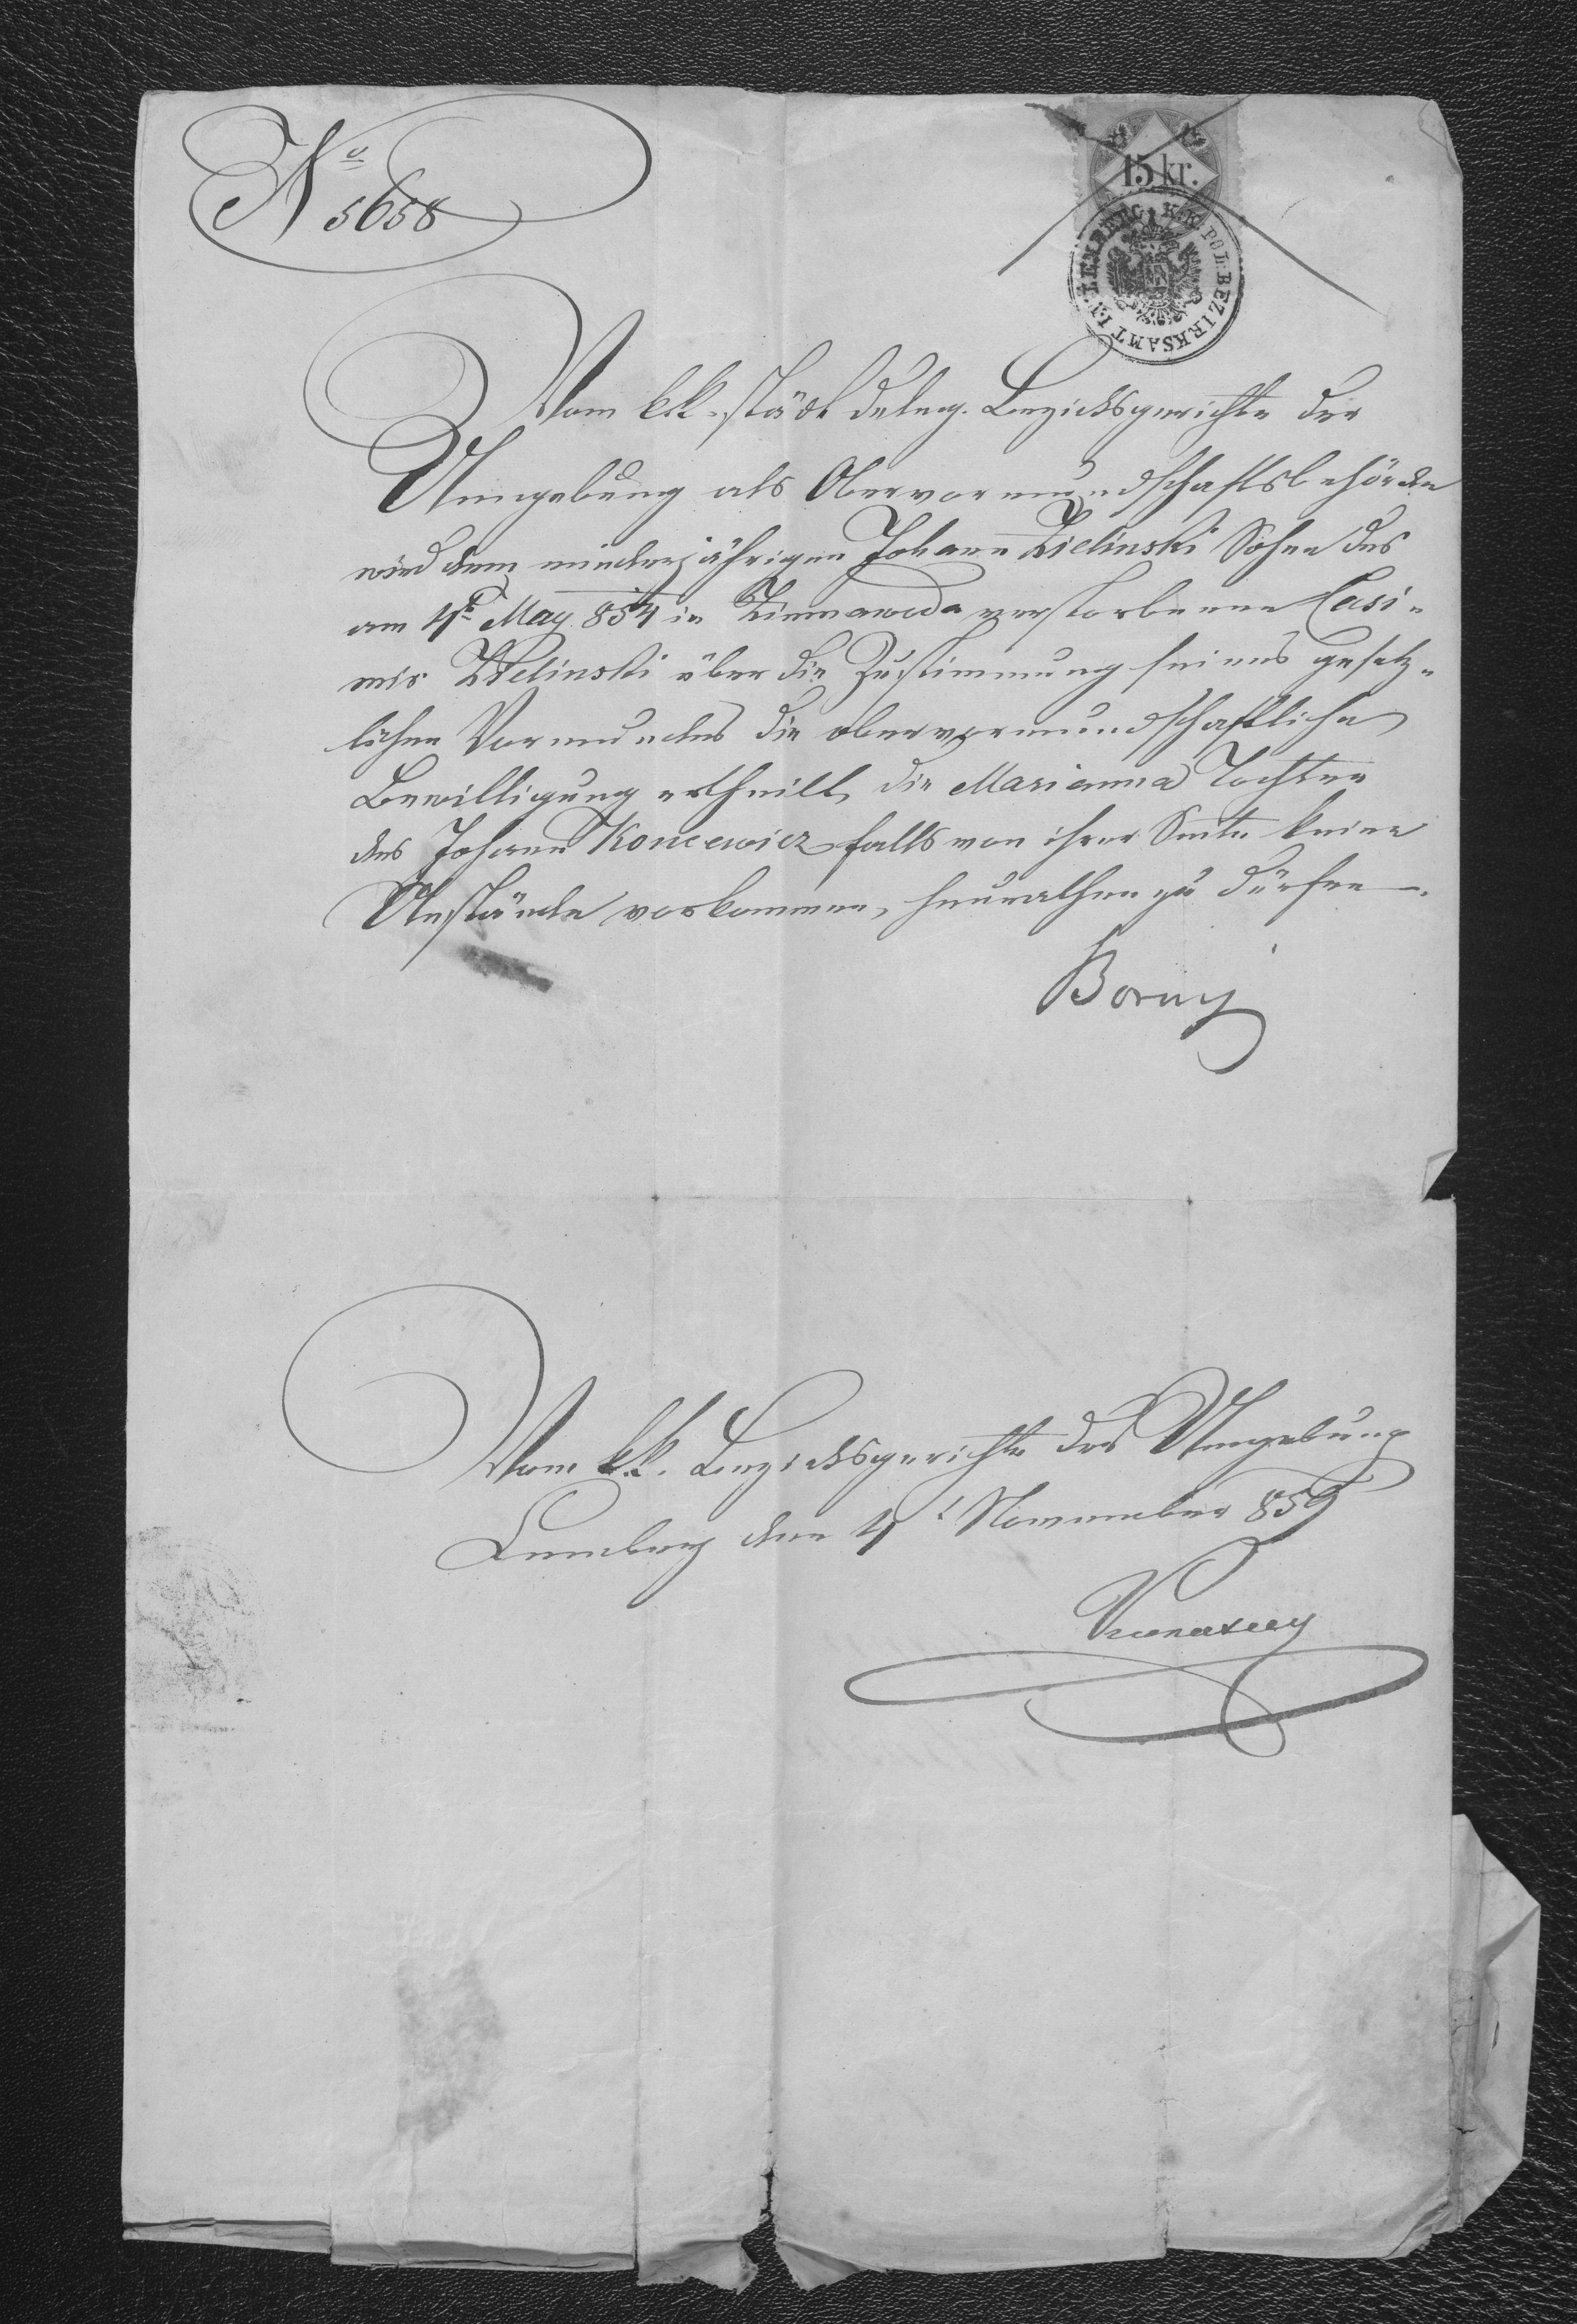 No 5658
15 kr.
K.K. POL: BEZIRKSAMT LEMBERG
Vom k.k. städt deleg. Bezirksgerichte der
Umgebung als Obervormundschaftsbehörde
wird dem minderjährigen Johann Zielinski Sohne des
am 4t May 854 in Zimnawoda verstorbenen Casi-
mir Zielinski über die Zustimmung seines gesetz-
lichen Vormundes die obervormundschaftliche
Bewilligung ertheilt, die Marianna Tochter
des Johann Koncewicz falls von ihrer Seite keine
Anstände vorkommen, heurathen zu dürfen.
Vom k.k. Bezirksgerichte der Umgebung
Lemberg den 4t November 859